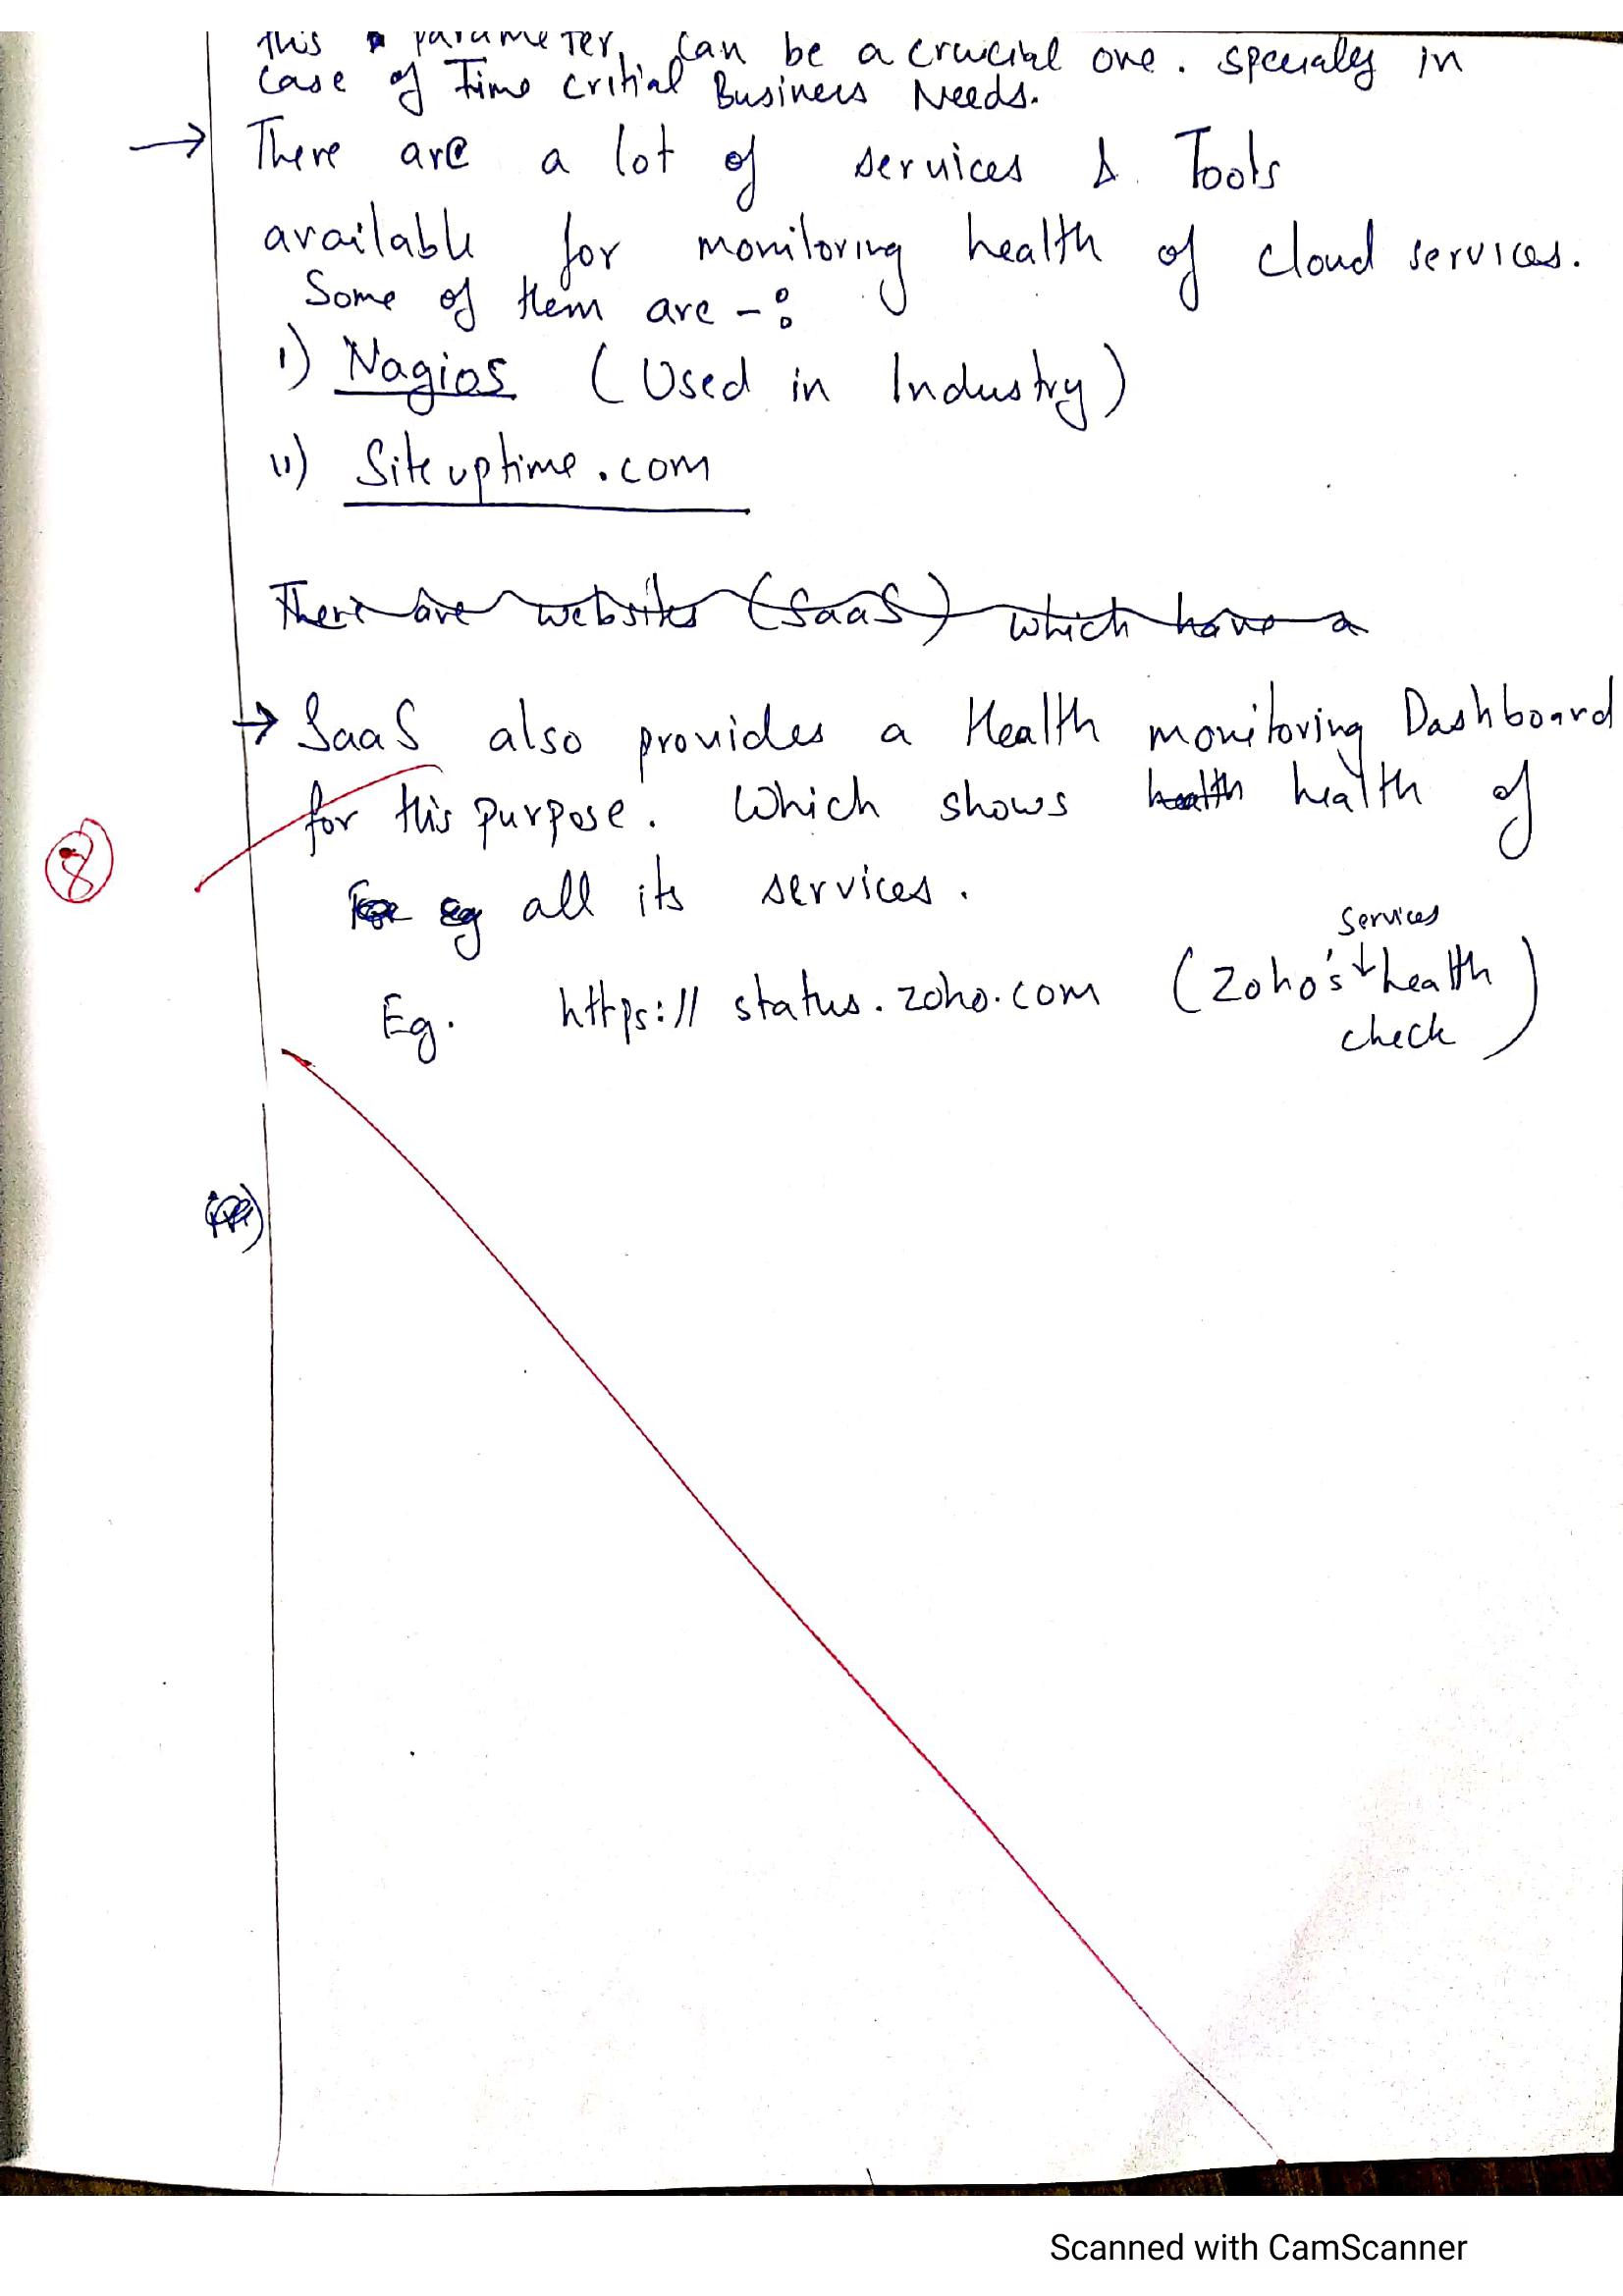 this parameter, can be a crucial one. specialy in
case of Time critial Business Needs.
→ There are a lot of services & Tools
available for monitoring health of cloud services.
Some of them are -:
i) Nagios (Used in Industry)
ii) Site uptime.com
There are websites (SaaS) which have a
→ SaaS also provides a Health monitoring Dashboard
for this purpose. Which shows health health of
For eg all its services.
Services
Eg. https:// status.zoho.com (Zoho's ↓ health
check)
8
Scanned with CamScanner